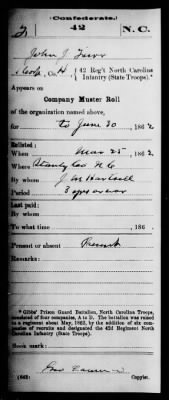 Confederate.
F 42 N.C.
John J. Furr
Co. H, 42 Reg't North Carolina
Infantry (State Troops).*
Appears on
Company Muster Roll
of the organization named above,
for to June 30, 1862
Enlisted:
When Mar 25, 1862
Where Stanly Co N C
By whom J M Hartsell
Period 3 yrs or war
Last paid:
By whom
To what time , 186 .
Present or absent Present
Remarks:
*Gibbs' Prison Guard Battalion, North Carolina Troops,
consisted of four companies, A to D. The battalion was raised
to a regiment about May, 1862, by the addition of six com-
panies of recruits and designated the 42d Regiment North
Carolina Infantry (State Troops).
Book mark:
(642) Copyist.